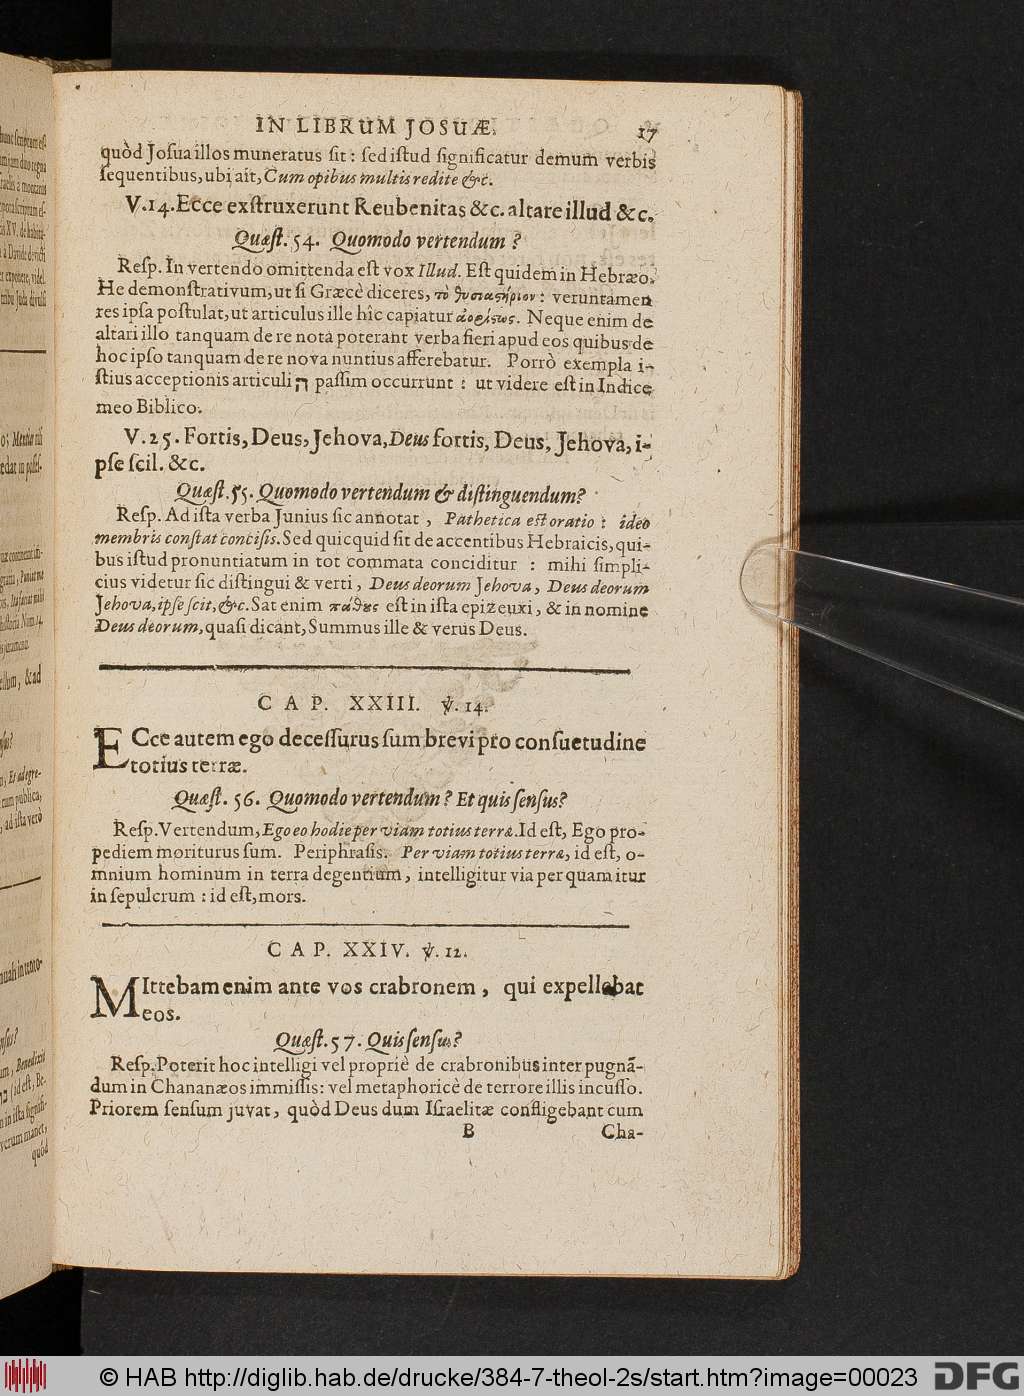 IN LIBRUM JOSUÆ. 17
quòd Josua illos muneratus sit: sed istud significatur demum verbis
sequentibus, ubi ait, Cum opibus multis redite &c.
V.14. Ecce exstruxerunt Reubenitas &c. altare illud &c.
Quæst. 54. Quomodo vertendum?
Resp. In vertendo omittenda est vox Illud. Est quidem in Hebræo,
He demonstrativum, ut si Græcè diceres, τὸ θυσιαστήριον: veruntamen
res ipsa postulat, ut articulus ille hîc capiatur ἀορίστως. Neque enim de
altari illo tanquam de re nota poterant verba fieri apud eos quibus de
hoc ipso tanquam de re nova nuntius afferebatur. Porrò exempla i-
stius acceptionis articuli ה passim occurrunt: ut videre est in Indice
meo Biblico.
V. 25. Fortis, Deus, Jehova, Deus fortis, Deus, Jehova, i-
pse scil. &c.
Quæst. 55. Quomodo vertendum & distinguendum?
Resp. Ad ista verba Junius sic annotat, Pathetica est oratio: ideo
membris constat concisis. Sed quicquid sit de accentibus Hebraicis, qui-
bus istud pronuntiatum in tot commata conciditur: mihi simpli-
cius videtur sic distingui & verti, Deus deorum Jehova, Deus deorum
Jehova, ipse scit, &c. Sat enim πάθους est in ista epizeuxi, & in nomine
Deus deorum, quasi dicant, Summus ille & verus Deus.
CAP. XXIII. ℣. 14.
ECce autem ego decessurus sum brevi pro consuetudine
totius terræ.
Quæst. 56. Quomodo vertendum? Et quis sensus?
Resp. Vertendum, Ego eo hodie per viam totius terræ. Id est, Ego pro-
pediem moriturus sum. Periphrasis. Per viam totius terræ, id est, o-
mnium hominum in terra degentium, intelligitur via per quam itur
in sepulcrum: id est, mors.
CAP. XXIV. ℣. 12.
MIttebam enim ante vos crabronem, qui expellebat
eos.
Quæst. 57. Quis sensus?
Resp. Poterit hoc intelligi vel propriè de crabronibus inter pugnã-
dum in Chananæos immissis: vel metaphoricè de terrore illis incusso.
Priorem sensum juvat, quòd Deus dum Israelitæ confligebant cum
B Cha-
© HAB http://diglib.hab.de/drucke/384-7-theol-2s/start.htm?image=00023 DFG